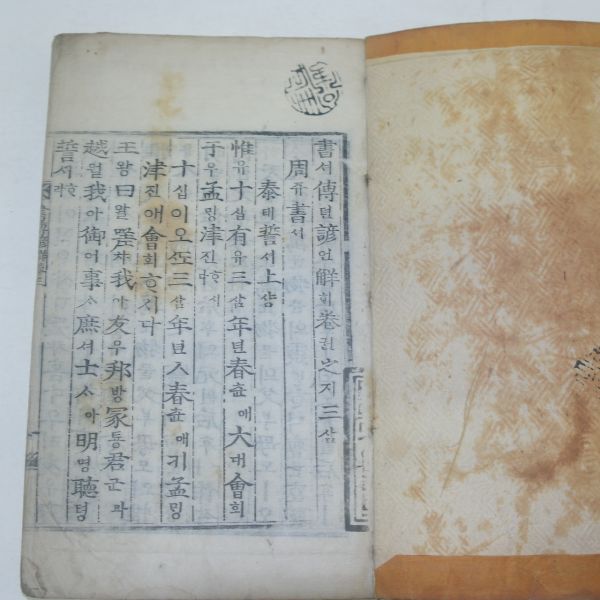 書셔傳뎐諺언解ᄒᆡ卷권之지三삼
周쥬書셔
泰태誓셔上샹
惟유十십有유三삼年년春츈애大대會회
于우孟ᄆᆡᆼ津진ᄒᆞ시다
十십이오ᄯᅩ三삼年년人春츈애기孟ᄆᆡᆼ
津진애會회ᄒᆞ시다
王왕曰왈嗟차我아友우邦방冢툥君군과
越월我아御어事ᄉᆞ庶셔士ᄉᆞ아明명聽텽
誓셔ᄒᆞ라